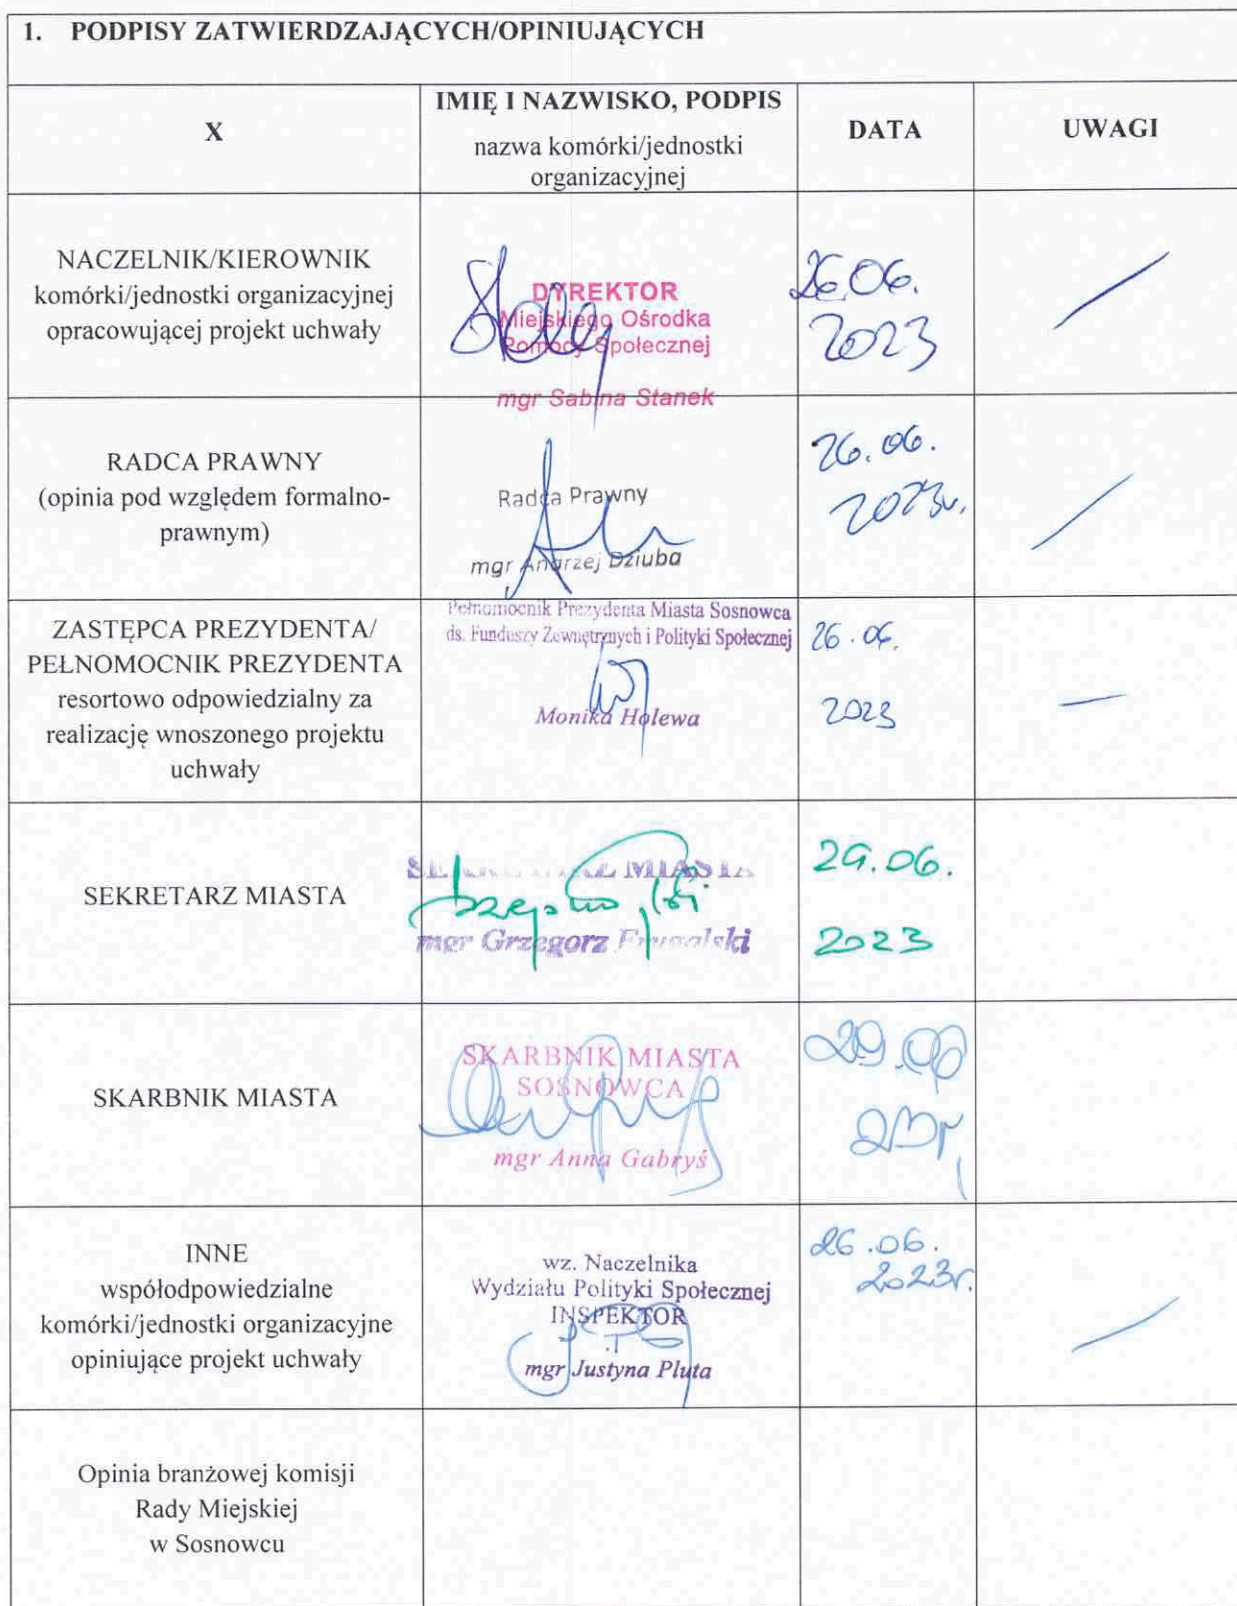 1. PODPISY ZATWIERDZAJĄCYCH/OPINIUJĄCYCH
X
IMIĘ I NAZWISKO, PODPIS
nazwa komórki/jednostki
organizacyjnej
DATA
UWAGI
NACZELNIK/KIEROWNIK
komórki/jednostki organizacyjnej
opracowującej projekt uchwały
DYREKTOR
Miejskiego Ośrodka
Pomocy Społecznej
mgr Sabina Stanek
26.06.
2023
RADCA PRAWNY
(opinia pod względem formalno-
prawnym)
Radca Prawny
mgr Andrzej Dziuba
26.06.
2023r.
ZASTĘPCA PREZYDENTA/
PEŁNOMOCNIK PREZYDENTA
resortowo odpowiedzialny za
realizację wnoszonego projektu
uchwały
Pełnomocnik Prezydenta Miasta Sosnowca
ds. Funduszy Zewnętrznych i Polityki Społecznej
Monika Holewa
26.06.
2023
SEKRETARZ MIASTA
SEKRETARZ MIASTA
mgr Grzegorz
29.06.
2023
SKARBNIK MIASTA
SKARBNIK MIASTA
SOSNOWCA
mgr Anna Gabryś
29.06
23r,
INNE
współodpowiedzialne
komórki/jednostki organizacyjne
opiniujące projekt uchwały
wz. Naczelnika
Wydziału Polityki Społecznej
INSPEKTOR
mgr Justyna Pluta
26.06.
2023r.
Opinia branżowej komisji
Rady Miejskiej
w Sosnowcu